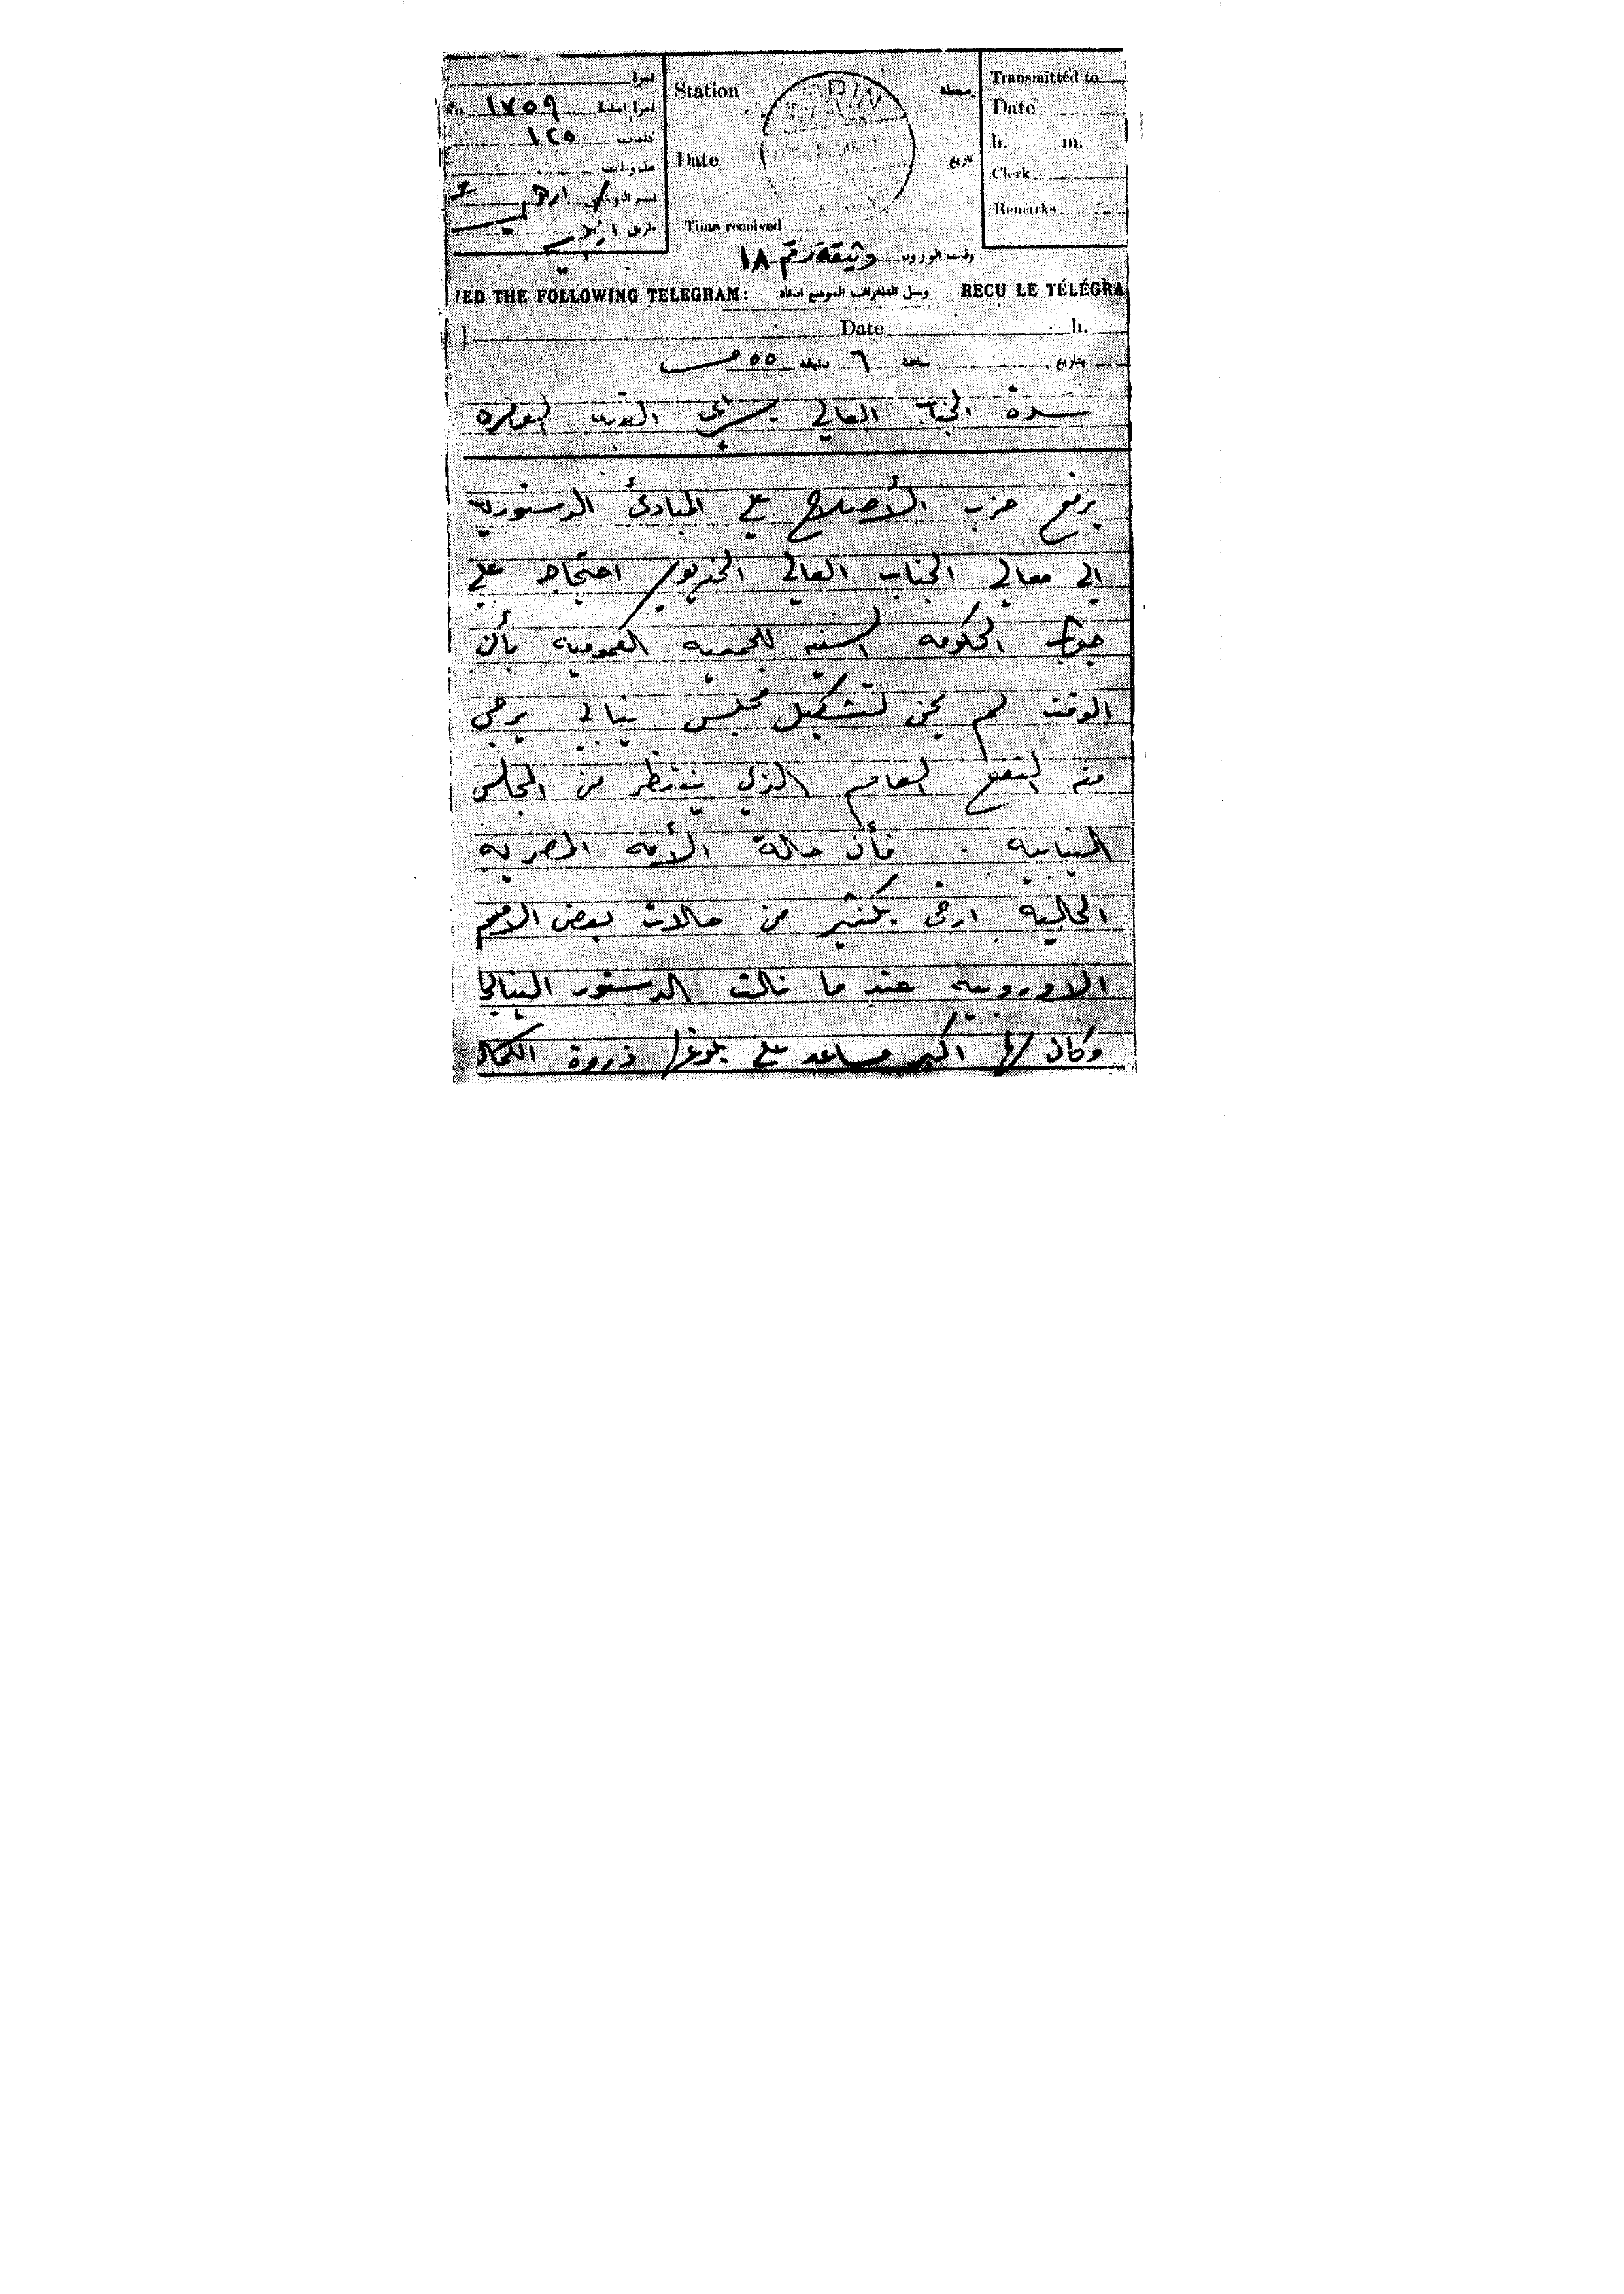 نمرة
No. ١٧٥٩ نمرة اصلية
كلمات ١٢٥
اسم
طريق
Station محطة
Date تاريخ
Time received
وقت الورود وثيقة رقم ١٨
Transmitted to
Date
h. m.
Clerk
Remarks
'ED THE FOLLOWING TELEGRAM: وصل التلغراف الموضح ادناه RECU LE TÉLÉGRA
Date h.
بتاريخ ساعة ٦ دقيقة ٥٥
سدة الجناب العالي بسراي القبه العامره
يرفع حزب الأصلاح علي المبادئ الدستوريه
الي معالي الجناب العالي الخديوي احتجاجه علي
جواب الحكومه السنيه للجمعيه العموميه بأن
الوقت لم يحن لتشكيل مجلس نيابي يرجى
منه النفع العام الذي ينتظر من المجالس
النيابيه . فأن حالة الأمه المصريه
الحاليه ارقى بكثير من حالات بعض الامم
الاوروبيه عند ما نالت الدستور النيابي
وكان لها اكبر مساعد علي بلوغها ذروة الكمال